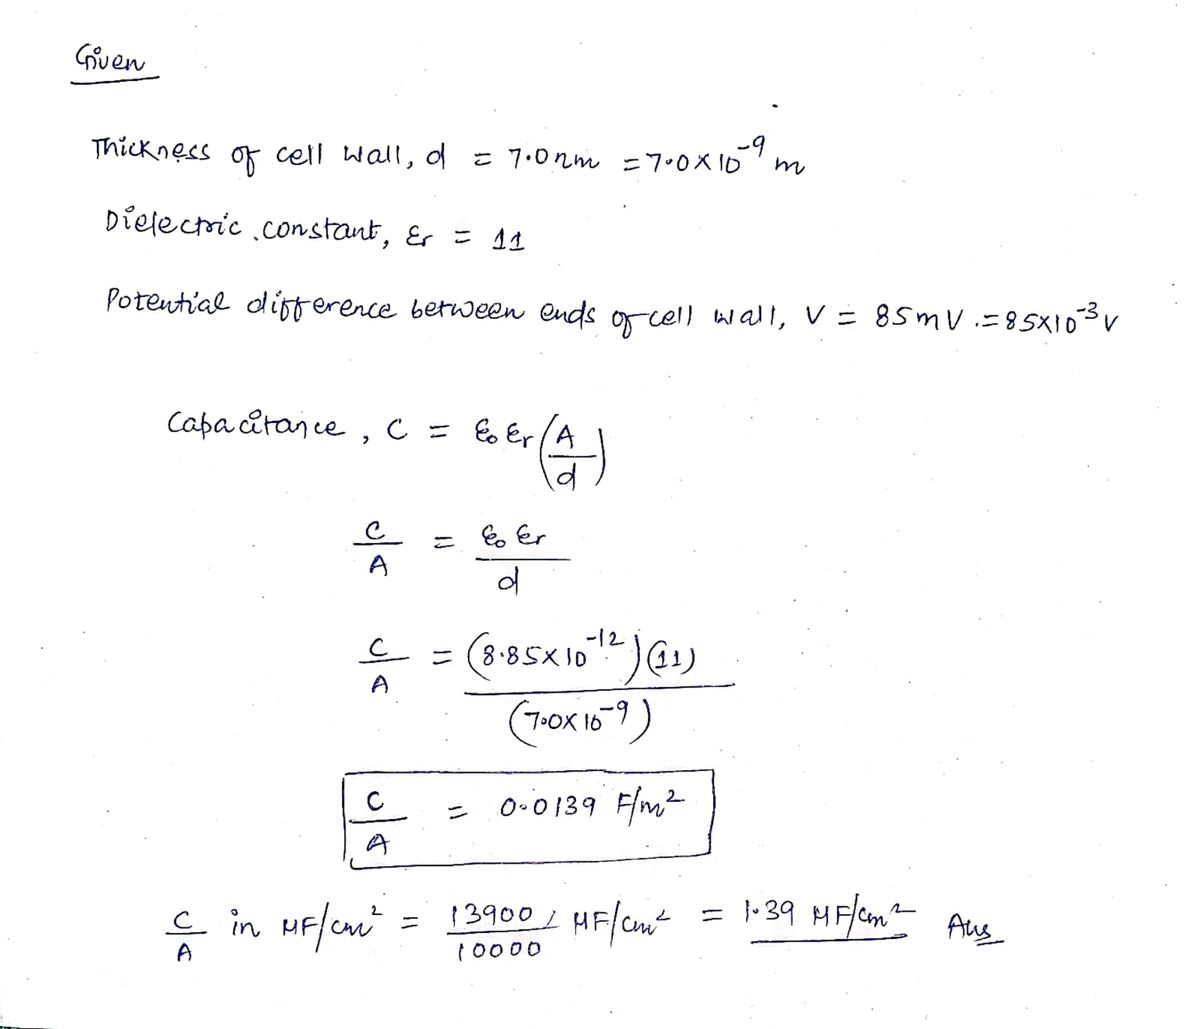 Given
Thickness of cell wall, d = 7.0 nm = 7.0 × 10⁻⁹ m
Dielectric constant, εr = 11
Potential difference between ends of cell wall, V = 85 mV. = 85×10⁻³ V
Capacitance, C = ε₀ εr (A/d)
C/A = ε₀ εr / d
C/A = (8.85×10⁻¹²)(11) / (7.0×10⁻⁹)
C/A = 0.0139 F/m²
C/A in μF/cm² = 13900/10000 μF/cm² = 1.39 μF/cm² Ans